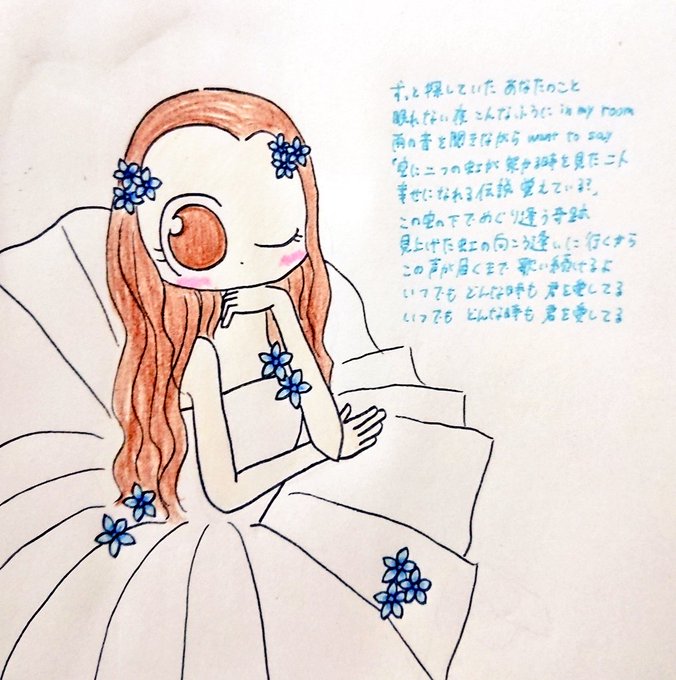 ずっと探していた あなたのこと
眠れない夜 こんなふうに in my room
雨の音を聞きながら want to say
「空に二つの虹が架かる時を見た二人
幸せになれる伝説 覚えている?」
この空の下でめぐり逢う奇跡
見上げた虹の向こう逢いに行くから
この声が届くまで 歌い続けるよ
いつでも どんな時も 君を愛してる
いつでも どんな時も 君を愛してる